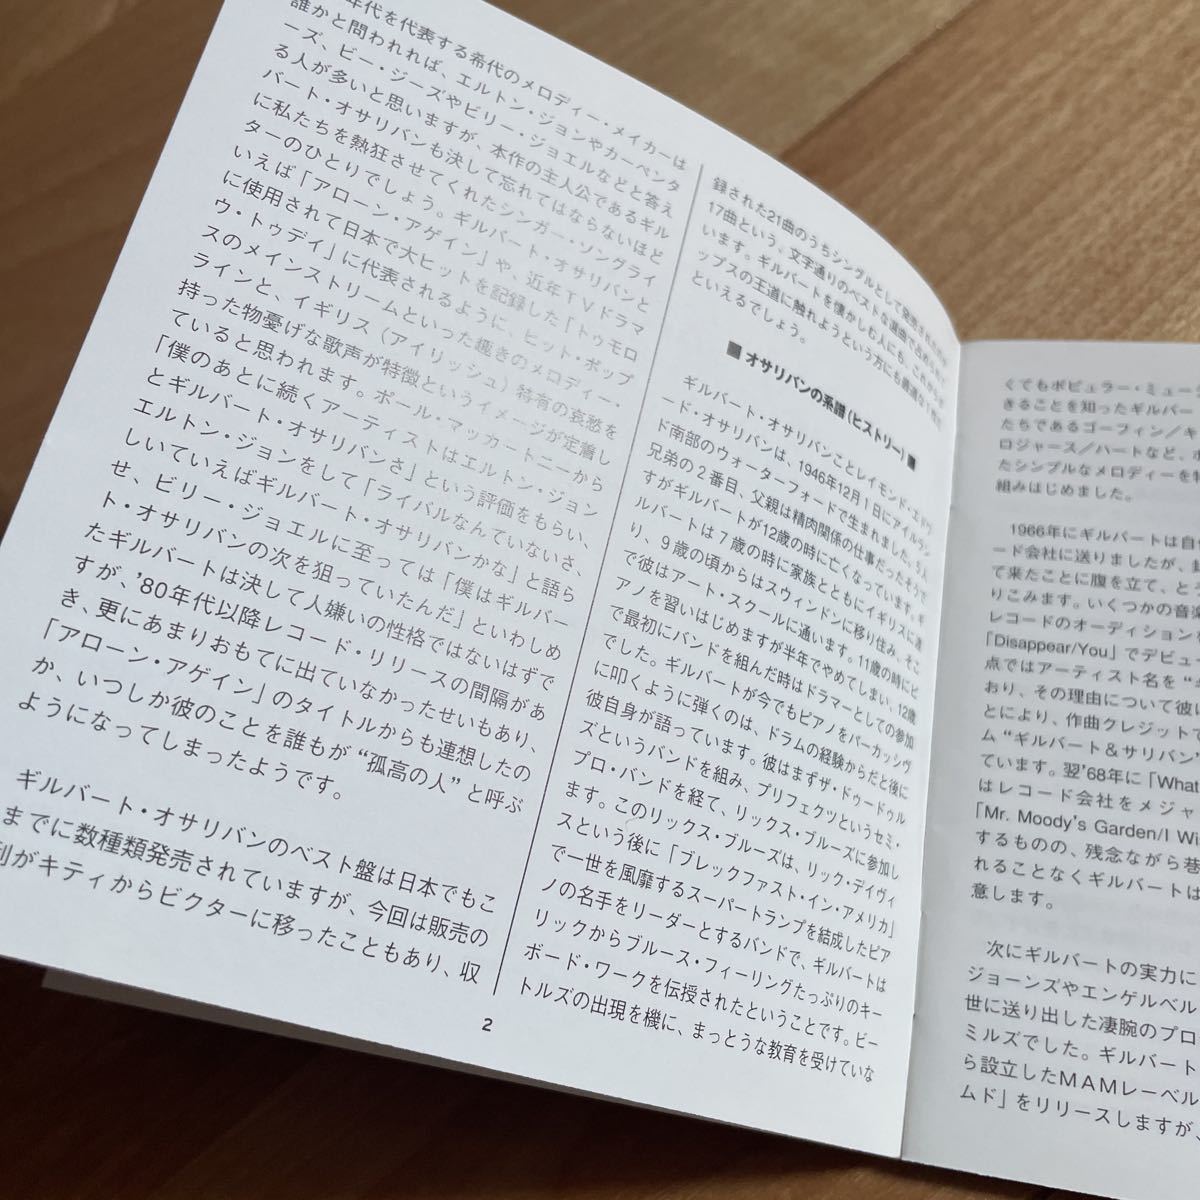 年代を代表する希代のメロディー・メイカーは
誰かと問われれば、エルトン・ジョンやカーペンタ
ーズ、ビー・ジーズやビリー・ジョエルなどと答え
る人が多いと思いますが、本作の主人公であるギル
バート・オサリバンも決して忘れてはならないほど
に私たちを熱狂させてくれたシンガー・ソングライ
ターのひとりでしょう。ギルバート・オサリバンと
いえば「アローン・アゲイン」や、近年ＴＶドラマ
に使用されて日本で大ヒットを記録した「トゥモロ
ウ・トゥデイ」に代表されるように、ヒット・ポップ
スのメインストリームといった趣きのメロディー・
ラインと、イギリス（アイリッシュ）特有の哀愁を
持った物憂げな歌声が特徴というイメージが定着し
ていると思われます。ポール・マッカートニーから
「僕のあとに続くアーティストはエルトン・ジョン
とギルバート・オサリバンさ」という評価をもらい、
エルトン・ジョンをして「ライバルなんていないさ、
しいていえばギルバート・オサリバンかな」と語ら
せ、ビリー・ジョエルに至っては「僕はギルバー
ト・オサリバンの次を狙っていたんだ」といわしめ
たギルバートは決して人嫌いの性格ではないはずで
すが、’80年代以降レコード・リリースの間隔があ
き、更にあまりおもてに出ていなかったせいもあり、
「アローン・アゲイン」のタイトルからも連想したの
か、いつしか彼のことを誰もが“孤高の人”と呼ぶ
ようになってしまったようです。
ギルバート・オサリバンのベスト盤は日本でもこ
までに数種類発売されていますが、今回は販売の
がキティからビクターに移ったこともあり、収
録された21曲のうちシングルとして発売されたのが
17曲という、文字通りのベストな選曲で占められて
います。ギルバートを懐かしむ人にも、これから
ップスの王道に触れようという方にも最適な1枚だ
といえるでしょう。
■ オサリバンの系譜（ヒストリー）■
ギルバート・オサリバンことレイモンド・エドワ
ード・オサリバンは、1946年12月1日にアイルラン
ド南部のウォーターフォードで生まれました。5人
兄弟の2番目、父親は精肉関係の仕事だったそうで
すがギルバートが12歳の時に亡くなっています。ギ
ルバートは7歳の時に家族とともにイギリスに渡
り、9歳の頃からはスウィンドンに移り住み、そこ
で彼はアート・スクールに通います。11歳の時にピ
アノを習いはじめますが半年でやめてしまい、12歳
で最初にバンドを組んだ時はドラマーとしての参加
でした。ギルバートが今でもピアノをパーカッシヴ
に叩くように弾くのは、ドラムの経験からだと後に
彼自身が語っています。彼はまずザ・ドゥードゥル
ズというバンドを組み、プリフェクツというセミ・
プロ・バンドを経て、リックス・ブルーズに参加し
ます。このリックス・ブルーズは、リック・デイヴィ
スという後に「ブレックファスト・イン・アメリカ」
で一世を風靡するスーパートランプを結成したピア
ノの名手をリーダーとするバンドで、ギルバートは
リックからブルース・フィーリングたっぷりのキー
ボード・ワークを伝授されたということです。ビー
トルズの出現を機に、まっとうな教育を受けていな
2
くてもポピュラー・ミュー
きることを知ったギルバー
たちであるゴーフィン／キ
ロジャース／ハートなど、ポ
たシンプルなメロディーを特
組みはじめました。
1966年にギルバートは自作
ード会社に送りましたが、
て来たことに腹を立て、と
りこみます。いくつかの音楽
レコードのオーディション
「Disappear/You」でデビュー
点ではアーティスト名を“
おり、その理由について彼
とにより、作曲クレジットで
ム“ギルバート＆サリバン
ています。翌’68年に「What
はレコード会社をメジャ
「Mr. Moody’s Garden/I Wi
するものの、残念ながら巷
れることなくギルバートは
意します。
次にギルバートの実力に
ジョーンズやエンゲルベル
世に送り出した凄腕のプロ
ミルズでした。ギルバート
ら設立したＭＡＭレーベル
ムド」をリリースしますが、